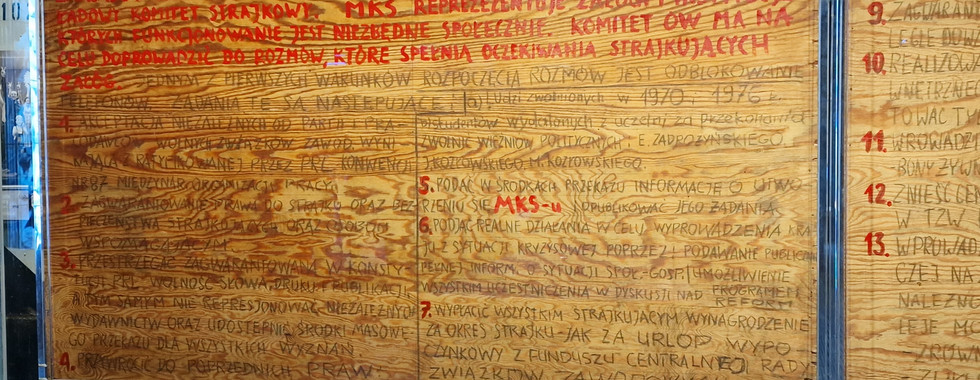 ŁADOWY KOMITET STRAJKOWY. MKS REPREZENTUJE
KTÓRYCH FUNKCJONOWANIE JEST NIEZBĘDNE SPOŁECZNIE. KOMITET ÓW MA NA
CELU DOPROWADZIĆ DO ROZMÓW, KTÓRE SPEŁNIĄ OCZEKIWANIA STRAJKUJĄCYCH
ZAŁÓG
JEDNYM Z PIERWSZYCH WARUNKÓW ROZPOCZĘCIA ROZMÓW JEST ODBLOKOWANIE
TELEFONÓW. ŻĄDANIA TE SĄ NASTĘPUJĄCE:
1. AKCEPTACJA NIEZALEŻNYCH OD PARTII I PRA-
CODAWCÓW WOLNYCH ZWIĄZKÓW ZAWOD. WYNI-
KAJĄCA Z RATYFIKOWANEJ PRZEZ PRL KONWENCJI
NR 87 MIĘDZYNAR. ORGANIZACJI PRACY.
2. ZAGWARANTOWANIE PRAWA DO STRAJKU ORAZ BEZ-
PIECZEŃSTWA STRAJKUJĄCYCH ORAZ OSOBOM
WSPOMAGAJĄCYM
3. PRZESTRZEGAĆ ZAGWARANTOWANĄ W KONSTY-
TUCJI PRL WOLNOŚĆ SŁOWA, DRUKU, PUBLIKACJI,
A TEM SAMYM NIE REPRESJONOWAĆ NIEZALEŻNYCH
WYDAWNICTW ORAZ UDOSTĘPNIĆ ŚRODKI MASOWE-
GO PRZEKAZU DLA WSZYSTKICH WYZNAŃ
4. PRZYWRÓCIĆ DO POPRZEDNICH PRAW
a) Ludzi zwolnionych w 1970 i 1976 r.
studentów wydalonych z uczelni za przekonania
ZWOLNIĆ WIĘŹNIÓW POLITYCZNYCH: E. ZADROŻYŃSKIEGO,
J. KOZŁOWSKIEGO, M. KOZŁOWSKIEGO,
5. PODAĆ W ŚRODKACH PRZEKAZU INFORMACJĘ O UTWO-
RZENIU SIĘ MKS-u OPUBLIKOWAĆ JEGO ŻĄDANIA
6. PODJĄĆ REALNE DZIAŁANIA W CELU WYPROWADZENIA KRA-
JU Z SYTUACJI KRYZYSOWEJ POPRZEZ: PODAWANIE PUBLICZNI
PEŁNEJ INFORM. O SYTUACJI SPOŁ-GOSP. UMOŻLIWIENIE
WSZYSTKIM UCZESTNICZENIA W DYSKUSJI NAD PROGRAMEM
REFORM
7. WYPŁACIĆ WSZYSTKIM STRAJKUJĄCYM WYNAGRODZENIE
ZA OKRES STRAJKU-JAK ZA URLOP WYPO
CZYNKOWY Z FUNDUSZU CENTRALNEJ RADY
ZWIĄZKÓW ZAWODOWYCH
9. ZAGWARAN
10. REALIZOWA
WNĘTRZNE
TOWAĆ TY
11. WPROWADZ
BONY ŻYWN
12. ZNIEŚĆ CE
W TZW
13. WPROWA
CZĘJ NA
NALEŻN
LEJE M
- ZRÓW